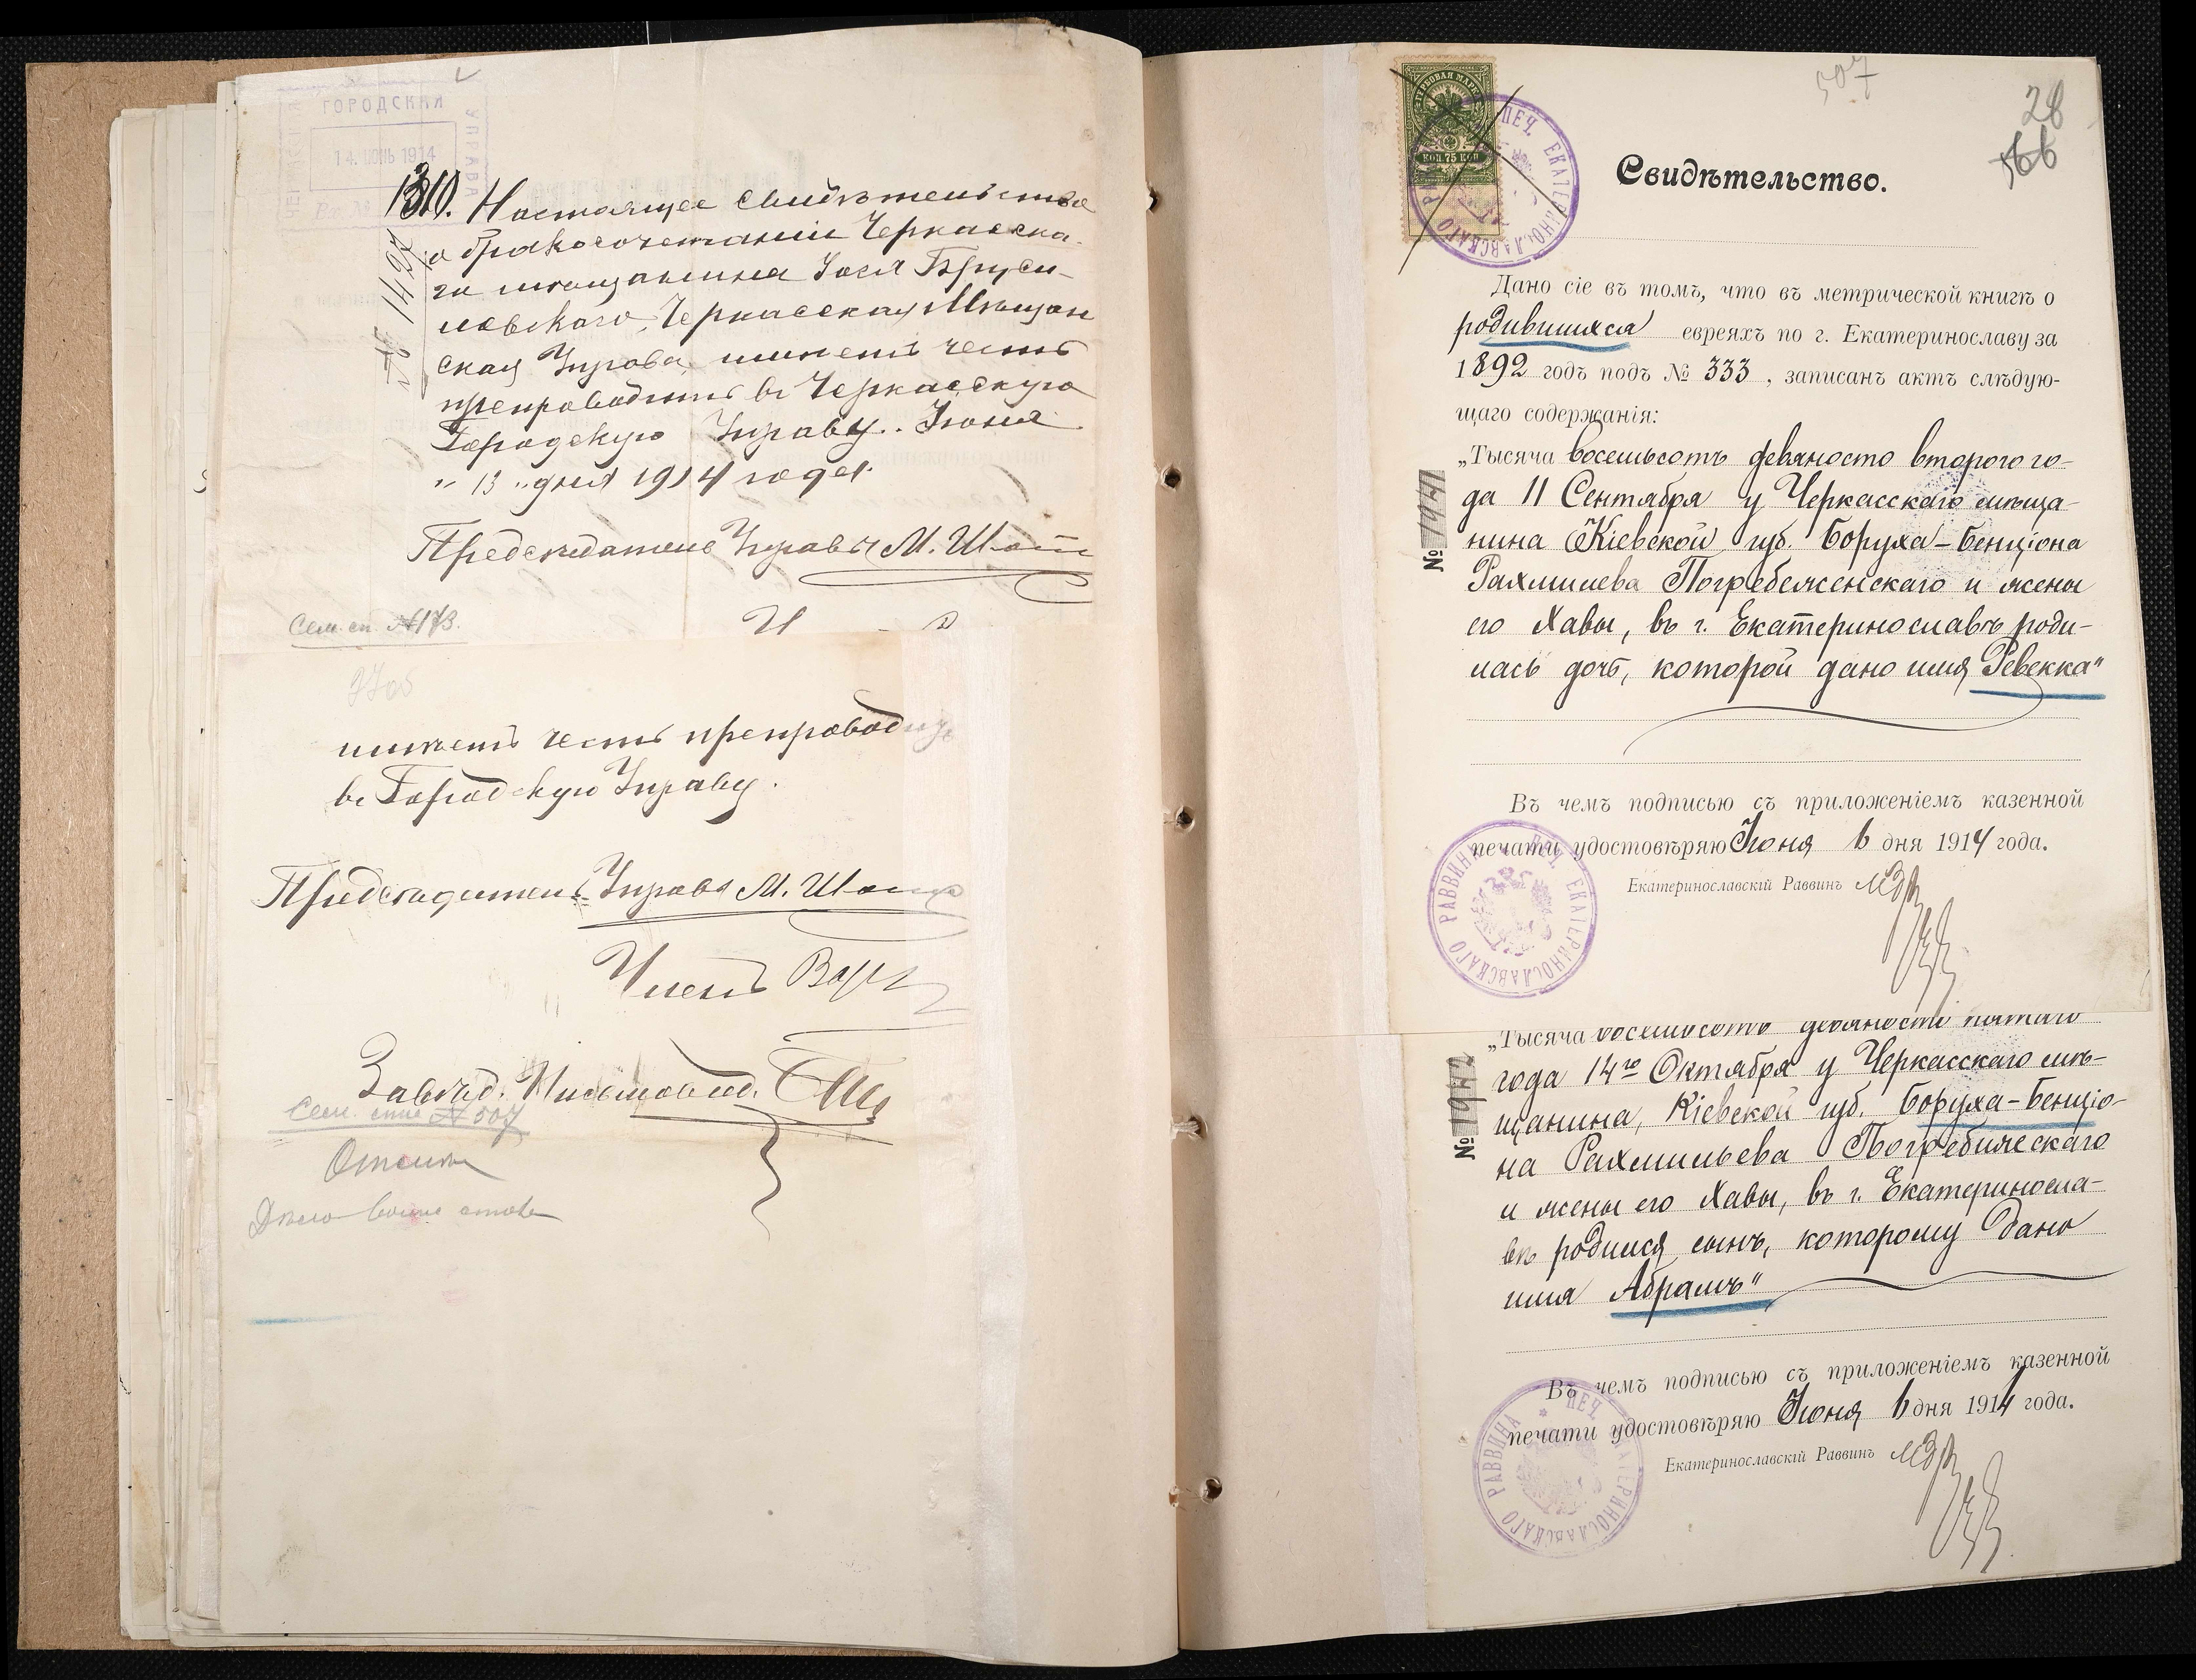 ГОРОДСКАЯ
УПРАВА
14. ІЮНЬ 1914
№ 1422
1310. Настоящее свидѣтельство
о бракосочетаніи Черкасска-
го мѣщанина Іося Бруси-
ловскаго, Черкасская Мѣщан
ская Управа, имѣетъ честь
препроводить въ Черкасскую
Городскую Управу. Іюня
„ 13 „ дня 1914 года.
Предсѣдатель Управы М. Шо
Сем. сп. № 173.
имѣетъ честь препроводить
въ Городскую Управу.
Предсѣдатель Управы М. Шо
Членъ
Завѣд. Письмовод.
Сем. спис № 507
507
28
66
ГЕРБОВАЯ МАРКА
КОП. 75 КОП.
ПЕЧ. ЕКАТЕРИНОСЛАВСКАГО РАВВИНА
Свидѣтельство.
Дано сіе въ томъ, что въ метрической книгѣ о
родившихся евреяхъ по г. Екатеринославу за
1892 годъ подъ № 333, записанъ актъ слѣдую-
щаго содержанія:
№ 1941
„Тысяча восемьсотъ девяносто второго го-
да 11 Сентября у Черкасскаго мѣща-
нина Кіевской губ. Боруха-Бенціона
Рахмилева Погребеженскаго и жены
его Хавы, въ г. Екатеринославѣ роди-
лась дочь, которой дано имя Ревекка"
Въ чемъ подписью съ приложеніемъ казенной
печати удостовѣряю Іюня 6 дня 1914 года.
Екатеринославскій Раввинъ
ПЕЧ. ЕКАТЕРИНОСЛАВСКАГО РАВВИНА
№ 1942
„Тысяча восемьсотъ девяносто пятаго
года 14го Октября у Черкасскаго мѣ-
щанина, Кіевской губ. Боруха-Бенціо-
на Рахмильева Погребижскаго
и жены его Хавы, въ г. Екатериносла-
вѣ родился сынъ, которому дано
имя Абрамъ"
Въ чемъ подписью съ приложеніемъ казенной
печати удостовѣряю Іюня 6 дня 1914 года.
Екатеринославскій Раввинъ
ПЕЧ. ЕКАТЕРИНОСЛАВСКАГО РАВВИНА